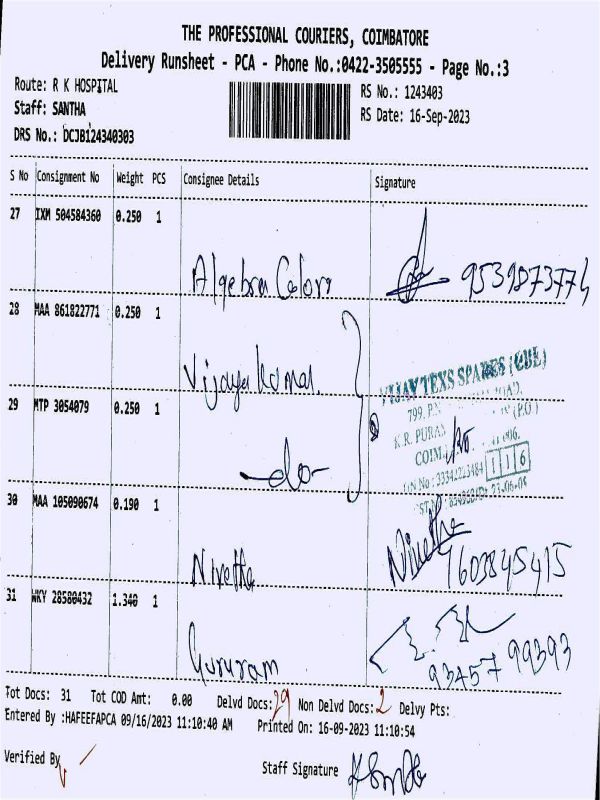 THE PROFESSIONAL COURIERS, COIMBATORE
Delivery Runsheet - PCA - Phone No.:0422-3505555 - Page No.:3
Route: R K HOSPITAL
RS No.: 1243403
Staff: SANTHA
RS Date: 16-Sep-2023
DRS No.: DCJB124340303
S No Consignment No Weight PCS Consignee Details Signature
27 IXM 504584360 0.250 1
Algebra Colors 9539873774
28 MAA 861822771 0.250 1
Vijaya Kumar.
VIJAY TEXS SPARES (CBE)
29 MTP 3054079 0.250 1
799, P.N ROAD,
K.R. PURAM (P.O)
COIM 006.
-do-
116
30 MAA 105090674 0.190 1
Nivetha Nivetha
9603845415
31 WKY 28580432 1.340 1
Gururam 93457 99393
Tot Docs: 31 Tot COD Amt: 0.00 Delvd Docs: 29 Non Delvd Docs: 2 Delvy Pts:
Entered By :HAFEEFAPCA 09/16/2023 11:10:40 AM Printed On: 16-09-2023 11:10:54
Verified By
Staff Signature